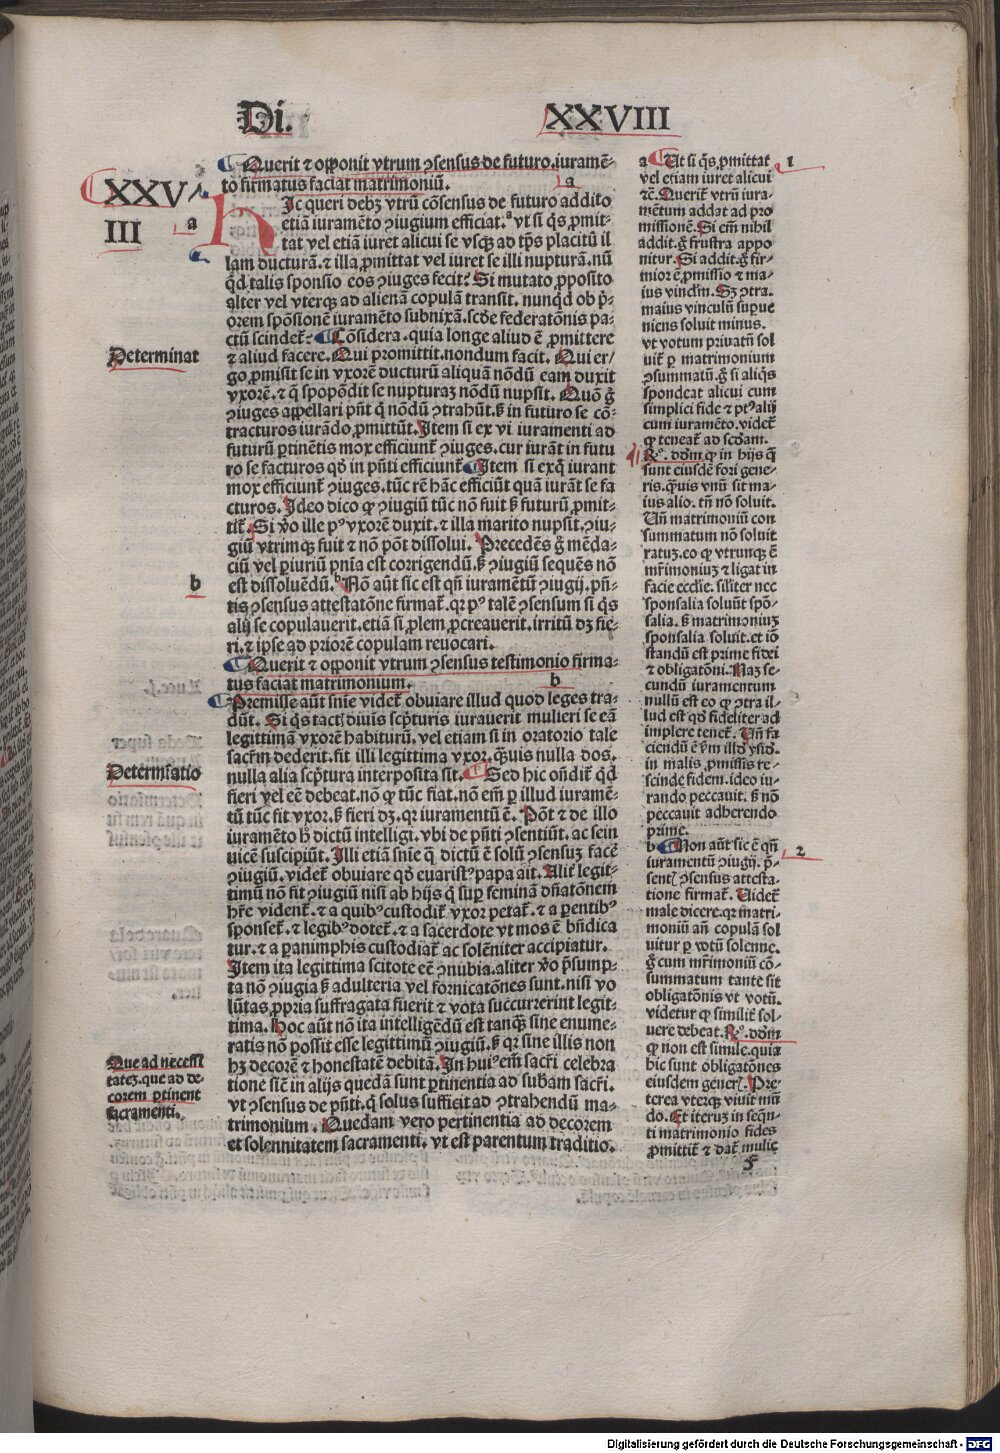 Di. XXVIII
XXV
III
a
Determinat
b
Determĩatio
Que ad necessi
tatez.que ad de-
corem ꝑtinent
sacramenti.
Querit ⁊ opponit vtrum ɔsensus de futuro.iuramē-
to firmatus faciat matrimoniū.
a
HIc queri debꝫ vtrū cōsensus de futuro addito
etiā iuramēto ɔiugium efficiat.ᵃvt si q̄s ꝓmit-
tat vel etiā iuret alicui se vsqꝫ ad tp̄s placitū il
lam ducturā.⁊ illa ꝓmittat vel iuret se illi nupturā.nū
q̄d talis sponsio eos ɔiuges fecit? Si mutato ꝓposito
alter vel vterqꝫ ad alienā copulā transit. nunq̄d ob p̄-
orem spōsionē iuramēto subnixā.scďe federatōnis pa-
ctū scindet̄? Cōsidera.quia longe aliud ē ꝓmittere
⁊ aliud facere. Qui promittit.nondum facit. Qui er/
go ꝓmisit se in vxorē ducturū aliquā nōdū eam duxit
vxorē.⁊ q̄ spopōdit se nupturaꝫ nōdū nupsit. Quō g̊
ɔiuges appellari pn̄t q̇ nōdū ɔtrahūt.ꝫ in futuro se cō-
tracturos iurādo ꝓmittūt. Item si ex vi iuramenti ad
futurū ꝑtinētis mox efficiunt̄ ɔiuges.cur iurāt in futu
ro se facturos qď in pn̄ti efficiunt̄. Item si exq̇ iurant
mox efficiunt̄ ɔiuges.tūc rē hāc efficiūt quā iurāt se fa
cturos. Ideo dico ꝙ ɔiugiū tūc nō fuit ꝫ futurū ꝓmit-
tit̄. Si v̊o ille pꝰ vxorē duxit.⁊ illa marito nupsit.ɔiu-
giū vtrimqꝫ fuit ⁊ nō pōt dissolui. Precedēs g̊ mēda-
ciū vel ꝑiuriū pn̄ia est corrigendū.ꝫ ɔiugiū sequēs nō
est dissoluēdū.ᵇNō aūt sic est qn̄ iuramētū ɔiugij.pn̄-
tis ɔsensus attestatōne firmat̄.qꝛ pꝰ talē ɔsensum si q̄s
alij se copulauerit.etiā si ꝓlem ꝓcreauerit.irritū dꝫ fie-
ri.⁊ ipse ad priorē copulam reuocari.
Querit ⁊ opponit vtrum ɔsensus testimonio firma-
tus faciat matrimonium. b
Premisse aūt sn̄ie videt̄ obuiare illud quod leges tra-
dūt. Si q̄s tact̄ diuis scp̄turis iurauerit mulieri se eā
legittimā vxorē habiturū.vel etiam si in oratorio tale
sacr̄m dederit.fit illi legittima vxor.q̄uis nulla dos.
nulla alia scp̄tura interposita sit. Sed hic on̄dit̄ q̄d
fieri vel eē debeat.nō ꝙ tūc fiat.nō em̄ ꝑ illud iuramē-
tū tūc fit vxor.ꝫ fieri dꝫ.qꝛ iuramentū ē. Pōt ⁊ de illo
iuramēto h̄ dictū intelligi.vbi de pn̄ti ɔsentiūt.ac sein
uicē suscipiūt. Illi etiā sn̄ie q̄ dictū ē solū ɔsensuꝫ facē
ɔiugiū.videt̄ obuiare qď euaristꝰ papa ait. Alit̄ legit-
timū nō fit ɔiugiū nisi ab hijs q̇ suꝑ feminā dn̄atōnem
hr̄e vident̄.⁊ a quibꝰ custodit̄ vxor petat̄.⁊ a ꝑentibꝰ
sponset̄.⁊ legibꝰ dotet̄.⁊ a sacerdote vt mos ē bn̄dica
tur.⁊ a ꝑanimphis custodiat̄ ac solēniter accipiatur.
Item ita legittima scitote eē ɔnubia.aliter v̊o p̄sump-
ta nō ɔiugia ꝫ adulteria vel fornicatōnes sunt.nisi vo
lūtas ꝓpria suffragata fuerit ⁊ vota succurrerint legit-
tima. Hoc aūt nō ita intelligēdū est tanq̄ꝫ sine enume-
ratis nō possit esse legittimū ɔiugiū.ꝫ qꝛ sine illis non
hꝫ decorē ⁊ honestatē debitā. In huiꝰ em̄ sacr̄i celebra
tione sicē in alijs quedā sunt ꝑtinentia ad subam sacr̄i.
vt ɔsensus de pn̄ti.q̇ solus sufficit ad ɔtrahendū ma-
trimonium. Quedam vero pertinentia ad decorem
et solennitatem sacramenti. vt est parentum traditio.
a Ut si q̄s ꝓmittat 1
vel etiam iuret alicui
⁊c̄. Querit̄ vtrū iura-
mētum addat ad pro
missionē. Si em̄ nihil
addit.g̊ frustra appo
nitur. Si addit.g̊ fir-
mior ē ꝓmissio ⁊ ma-
ius vinclm̄. Sꝫ ɔtra.
maius vinculū suꝑue
niens soluit minus.
vt votum priuatū sol
uit̄ ꝑ matrimonium
ɔsummatū.g̊ si aliq̄s
spondeat alicui cum
simplici fide ⁊ ptꝰ alij
cum iuramēto.videt̄
ꝙ teneat̄ ad scďam.
Rº. ďdm ꝙ in hijs q̄
sunt eiusdē fori gene-
ris.q̄uis vnū sit ma-
ius alio. tn̄ nō soluit.
Un̄ matrimoniū con
summatum nō soluit
ratuꝫ.eo ꝙ vtrunqꝫ ē
mr̄imoniuꝫ ⁊ ligat in
facie ecclie. silīter nec
sponsalia soluūt spō-
salia. ꝫ matrimoniuꝫ
sponsalia soluit.et iō
standū est prime fidei
⁊ obligatōni. Naꝫ se-
cundū iuramentum
nullū est eo ꝙ ɔtra il-
lud est qď fideliter ad
implere tenet̄. Un̄ fa
ciendū ē ẜm illď ysid̄.
in malis ꝓmissis re-
scinde fidem. ideo iu-
rando peccauit. ꝫ nō
peccauit adherendo
prime.
b Non aūt sic ē qn̄ 2
iuramentū ɔiugij. p̄-
sent̄ ɔsensus attesta-
tione firmat̄. Videt̄
male dicere.qꝛ matri-
moniū an̄ copulā sol
uitur ꝑ votū solenne.
g̊ cum mr̄imoniū cō-
summatum tante sit
obligatōnis vt votū.
videtur ꝙ similit̄ sol-
uere debeat. Rº. ďdm
ꝙ non est simile.quia
hic sunt obligatōnes
eiusdem gener̄. Pre-
terea vterqꝫ viuit mū
do. Et iteruꝫ in seq̄n-
ti matrimonio fides
ꝓmittit̄ ⁊ dat̄ mulic
f
Digitalisierung gefördert durch die Deutsche Forschungsgemeinschaft - DFG